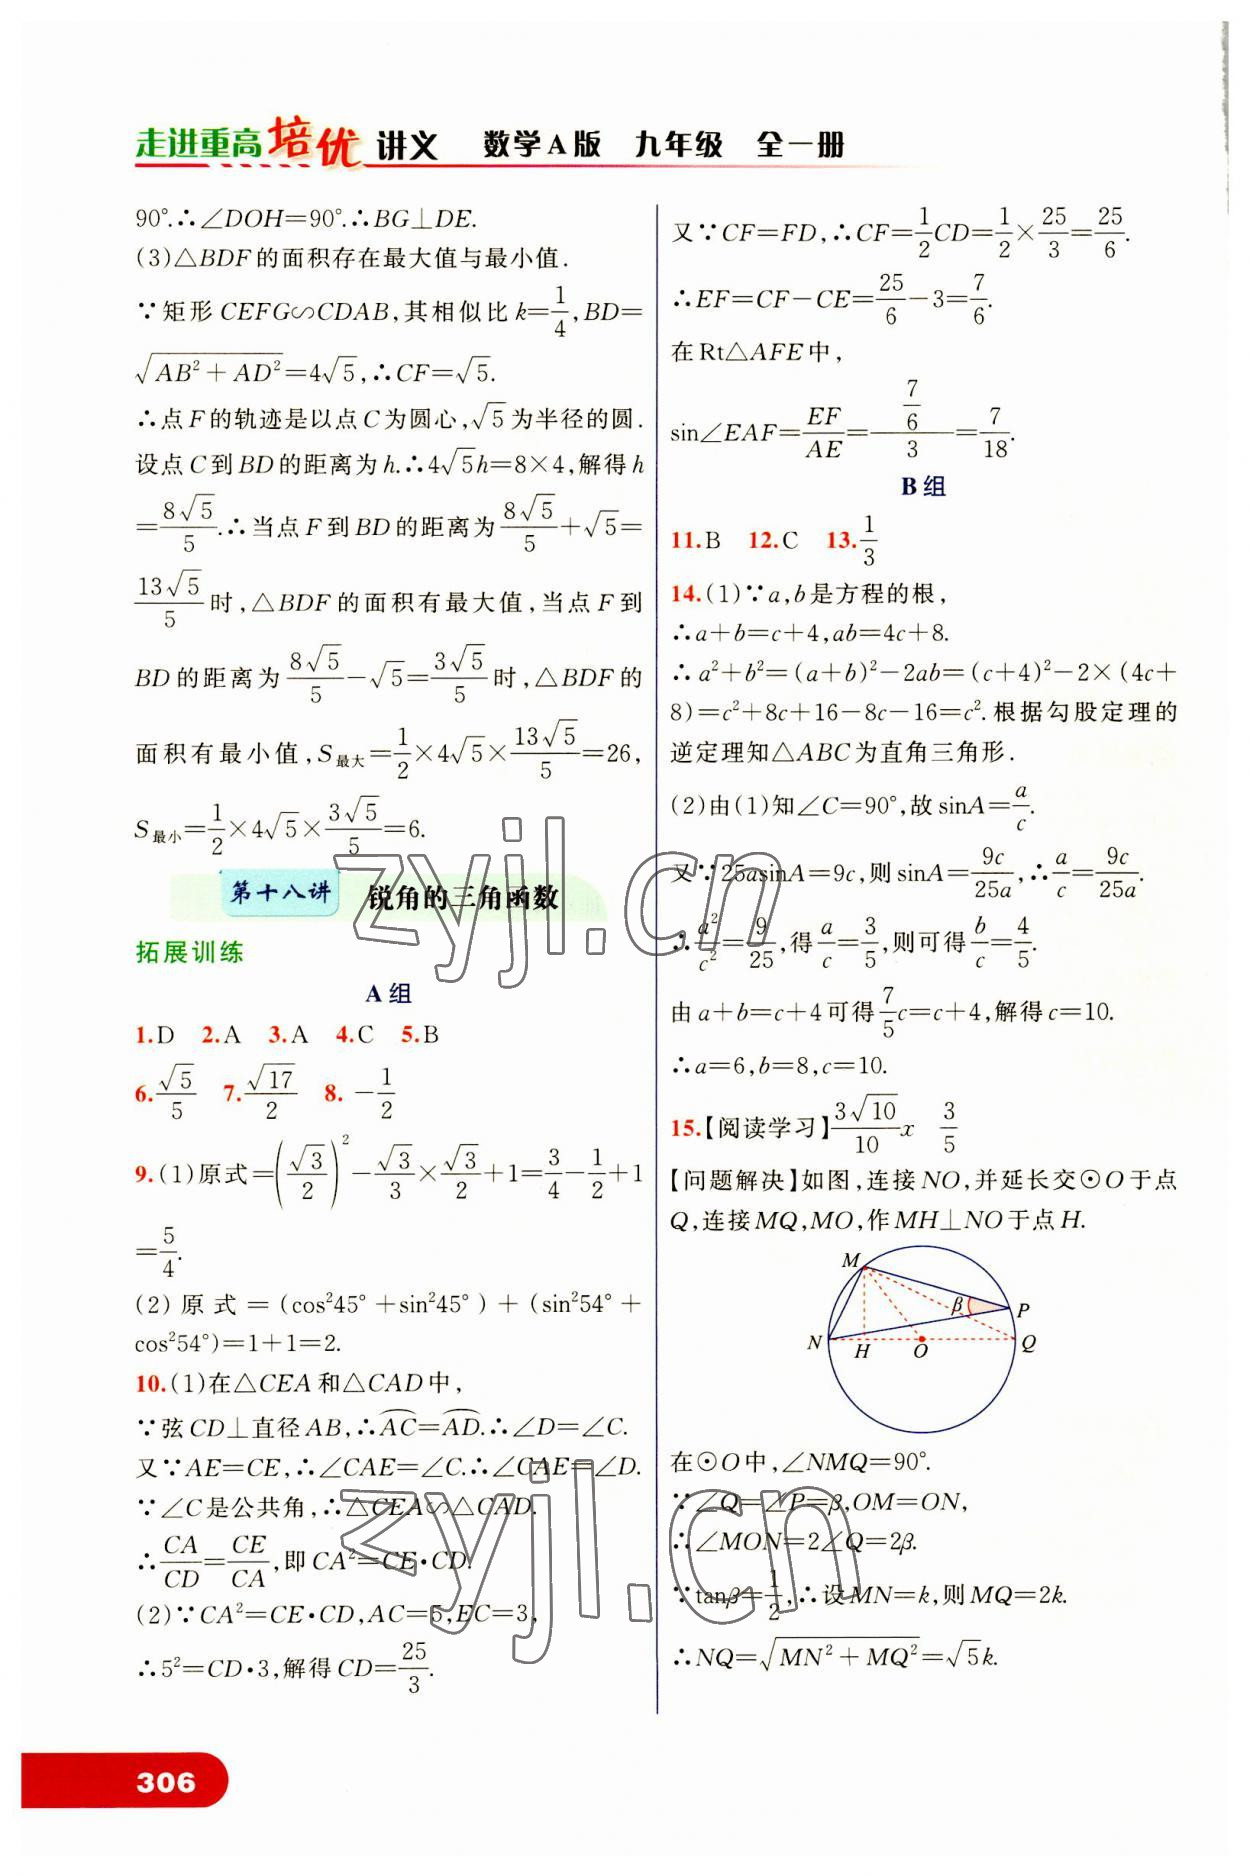 走进重高培优 讲义 数学A版 九年级 全一册
90°.∴∠DOH=90°.∴BG⊥DE.
(3)△BDF的面积存在最大值与最小值.
∵矩形CEFG∽CDAB,其相似比k=1/4,BD=
√(AB²+AD²)=4√5,∴CF=√5.
∴点F的轨迹是以点C为圆心,√5为半径的圆.
设点C到BD的距离为h.∴4√5h=8×4,解得h
=8√5/5.∴当点F到BD的距离为8√5/5+√5=
13√5/5时,△BDF的面积有最大值,当点F到
BD的距离为8√5/5-√5=3√5/5时,△BDF的
面积有最小值,S最大=1/2×4√5×13√5/5=26,
S最小=1/2×4√5×3√5/5=6.
第十八讲 锐角的三角函数
拓展训练
A组
1.D 2.A 3.A 4.C 5.B
6.√5/5 7.√17/2 8. -1/2
9.(1)原式=(√3/2)²-√3/3×√3/2+1=3/4-1/2+1
=5/4.
(2)原式=(cos²45°+sin²45°)+(sin²54°+
cos²54°)=1+1=2.
10.(1)在△CEA和△CAD中,
∵弦CD⊥直径AB,∴A͡C=A͡D.∴∠D=∠C.
又∵AE=CE,∴∠CAE=∠C.∴∠CAE=∠D.
∵∠C是公共角,∴△CEA∽△CAD.
∴CA/CD=CE/CA,即CA²=CE·CD.
(2)∵CA²=CE·CD,AC=5,EC=3,
∴5²=CD·3,解得CD=25/3.
又∵CF=FD,∴CF=1/2CD=1/2×25/3=25/6.
∴EF=CF-CE=25/6-3=7/6.
在Rt△AFE中,
sin∠EAF=EF/AE=(7/6)/3=7/18.
B组
11.B 12.C 13.1/3
14.(1)∵a,b是方程的根,
∴a+b=c+4,ab=4c+8.
∴a²+b²=(a+b)²-2ab=(c+4)²-2×(4c+
8)=c²+8c+16-8c-16=c².根据勾股定理的
逆定理知△ABC为直角三角形.
(2)由(1)知∠C=90°,故sinA=a/c.
又∵25asinA=9c,则sinA=9c/25a,∴a/c=9c/25a.
∴a²/c²=9/25,得a/c=3/5,则可得b/c=4/5.
由a+b=c+4可得7/5c=c+4,解得c=10.
∴a=6,b=8,c=10.
15.【阅读学习】3√10/10x 3/5
【问题解决】如图,连接NO,并延长交⊙O于点
Q,连接MQ,MO,作MH⊥NO于点H.
M
β
P
N
H
O
Q
在⊙O中,∠NMQ=90°.
∵∠Q=∠P=β,OM=ON,
∴∠MON=2∠Q=2β.
∵tanβ=1/2,∴设MN=k,则MQ=2k.
∴NQ=√(MN²+MQ²)=√5k.
zyjl.cn
zyjl.cn
306